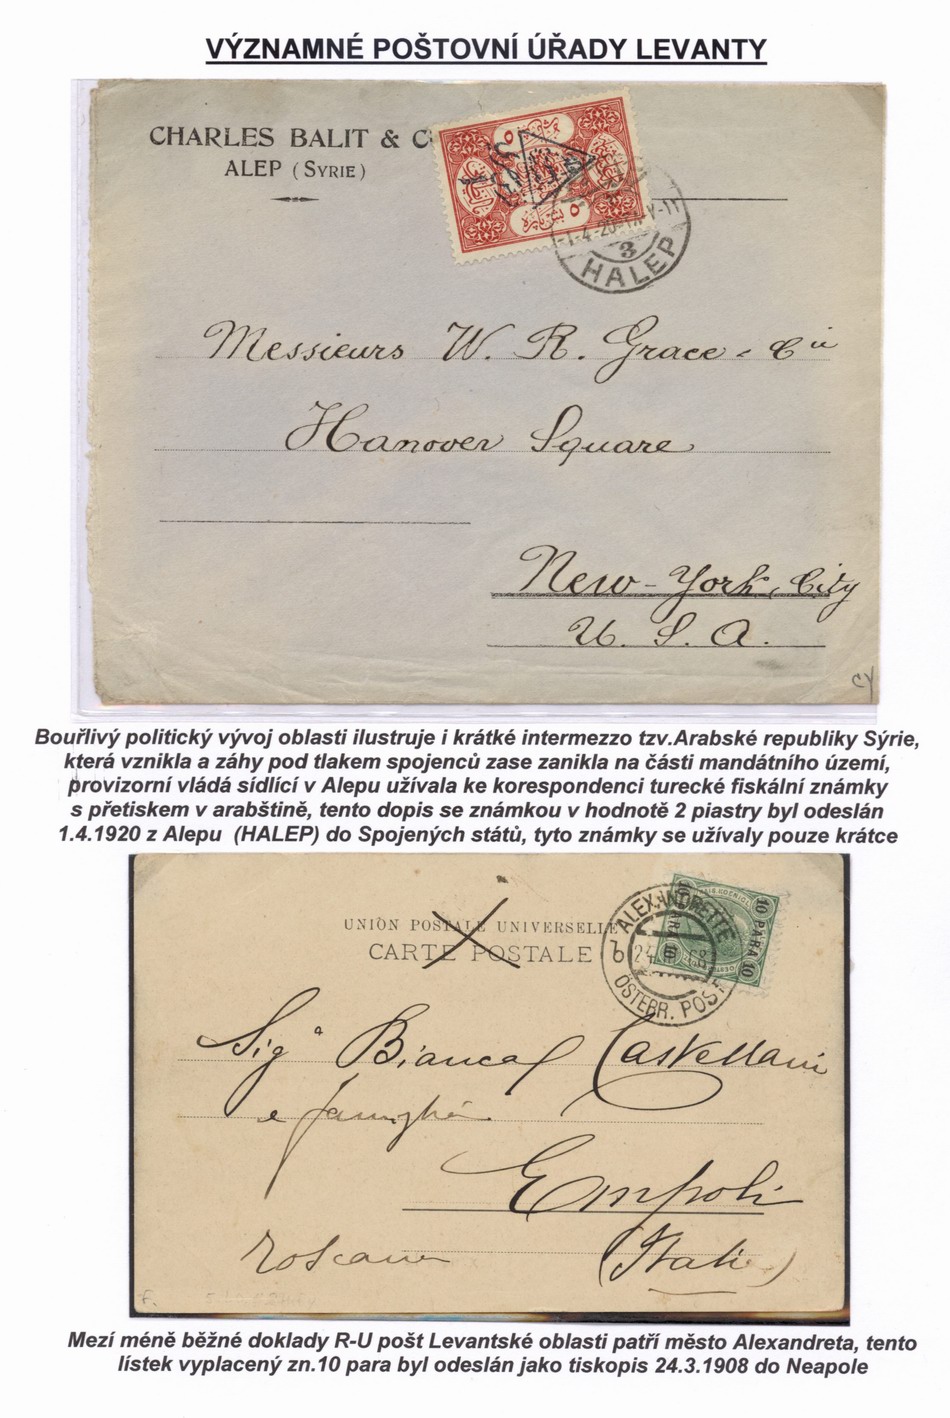 VÝZNAMNÉ POŠTOVNÍ ÚŘADY LEVANTY
CHARLES BALIT & C
ALEP (SYRIE)
3
HALEP
Messieurs W. R. Grace & Cie
Hanover Square
New-York City
U. S. A.
CY
Bouřlivý politický vývoj oblasti ilustruje i krátké intermezzo tzv.Arabské republiky Sýrie,
která vznikla a záhy pod tlakem spojenců zase zanikla na části mandátního území,
provizorní vládá sídlící v Alepu užívala ke korespondenci turecké fiskální známky
s přetiskem v arabštině, tento dopis se známkou v hodnotě 2 piastry byl odeslán
1.4.1920 z Alepu (HALEP) do Spojených států, tyto známky se užívaly pouze krátce
UNION POSTALE UNIVERSELLE
CARTE POSTALE
ALEXANDRETTE
ÖSTERR. POST
b
10 PARA 10
Sigª Bianca Castellani
e famiglia
Empoli
Toscana (Italie)
Mezí méně běžné doklady R-U pošt Levantské oblasti patří město Alexandreta, tento
lístek vyplacený zn.10 para byl odeslán jako tiskopis 24.3.1908 do Neapole